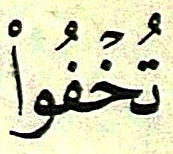 تُخۡفُواْ